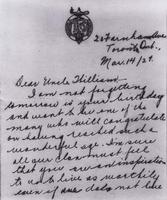 20 Farnham Ave
Toronto, Ont.,
Mar. 14/29.
Dear Uncle William:
I am not forgetting
tomorrow is your birthday
and want to be one of the
many who will congratulate
on having reached such a
wonderful age. I'm sure
all our clan must feel
that you are an inspiration
to us to live as worthily
even if our does not like